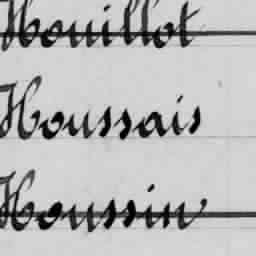 Houillot
Houssais
Houssin